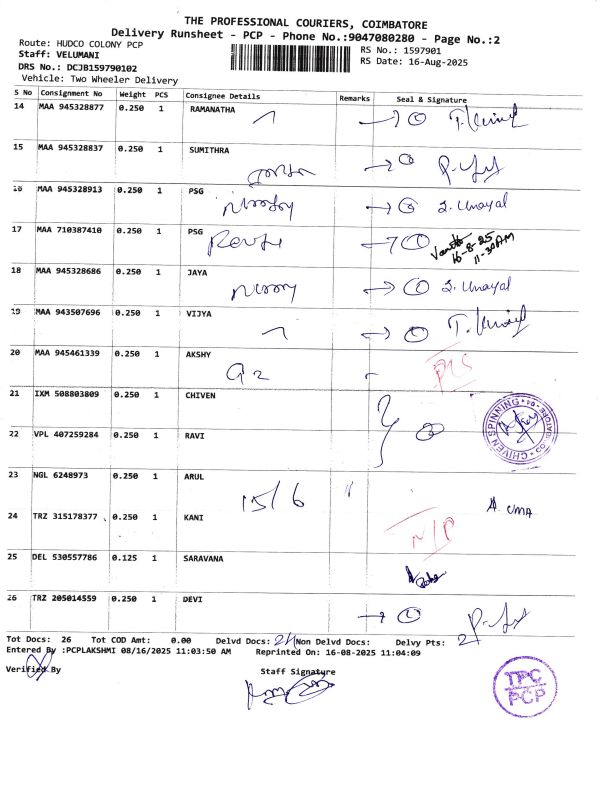 THE PROFESSIONAL COURIERS, COIMBATORE
Delivery Runsheet - PCP - Phone No.:9047080280 - Page No.:2
Route: HUDCO COLONY PCP
Staff: VELUMANI
DRS No.: DCJB159790102
Vehicle: Two Wheeler Delivery
RS No.: 1597901
RS Date: 16-Aug-2025
S No Consignment No Weight PCS Consignee Details Remarks Seal & Signature
14 MAA 945328877 0.250 1 RAMANATHA
15 MAA 945328837 0.250 1 SUMITHRA
16 MAA 945328913 0.250 1 PSG
J. Unayal
17 MAA 710387410 0.250 1 PSG
16-8-25
11-30AM
18 MAA 945328686 0.250 1 JAYA
J. Unayal
19 MAA 943507696 0.250 1 VIJYA
20 MAA 945461339 0.250 1 AKSHY
21 IXM 508803809 0.250 1 CHIVEN
CHIVEN SPINNING
22 VPL 407259284 0.250 1 RAVI
23 NGL 6248973 0.250 1 ARUL
15/6
UMA
24 TRZ 315178377 0.250 1 KANI
N/P
25 DEL 530557786 0.125 1 SARAVANA
26 TRZ 205014559 0.250 1 DEVI
Tot Docs: 26 Tot COD Amt: 0.00 Delvd Docs: 24 Non Delvd Docs: Delvy Pts: 2
Entered By :PCPLAKSHMI 08/16/2025 11:03:50 AM Reprinted On: 16-08-2025 11:04:09
Verified By Staff Signature
TPC
PCP